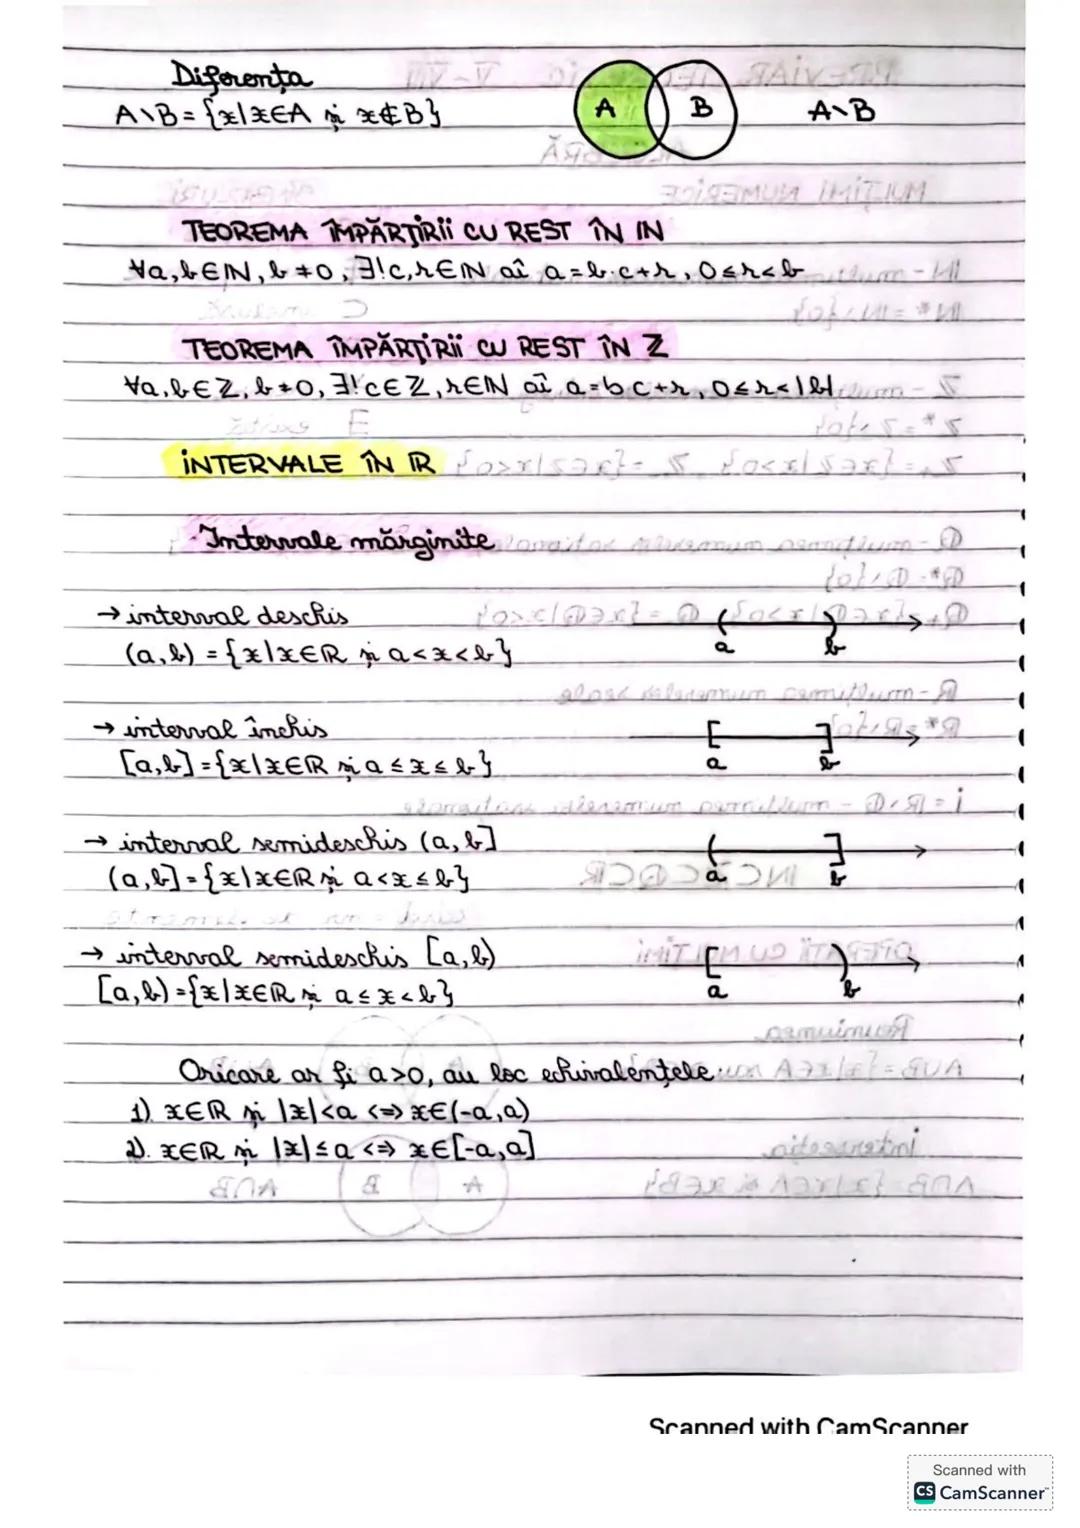 Diferența
A\B = {x|x∈A și x∉B}
A B A\B
TEOREMA ÎMPĂRȚIRII CU REST ÎN ℕ
∀a,b∈ℕ, b≠0, ∃!c,r∈ℕ aî a=b·c+r, 0≤r<b
TEOREMA ÎMPĂRȚIRII CU REST ÎN ℤ
∀a,b∈ℤ, b≠0, ∃!c∈ℤ, r∈ℕ aî a=bc+r, 0≤r<|b|
INTERVALE ÎN ℝ
Intervale mărginite
→ interval deschis
(a,b) = {x|x∈ℝ și a<x<b}
a b
→ interval închis
[a,b] = {x|x∈ℝ și a≤x≤b}
a b
→ interval semideschis (a,b]
(a,b] = {x|x∈ℝ și a<x≤b}
a b
→ interval semideschis [a,b)
[a,b) = {x|x∈ℝ și a≤x<b}
a b
Oricare ar fi a>0, au loc echivalențele:
1). x∈ℝ și |x|<a <=> x∈(-a,a)
2). x∈ℝ și |x|≤a <=> x∈[-a,a]
Scanned with CamScanner
Scanned with
CS CamScanner